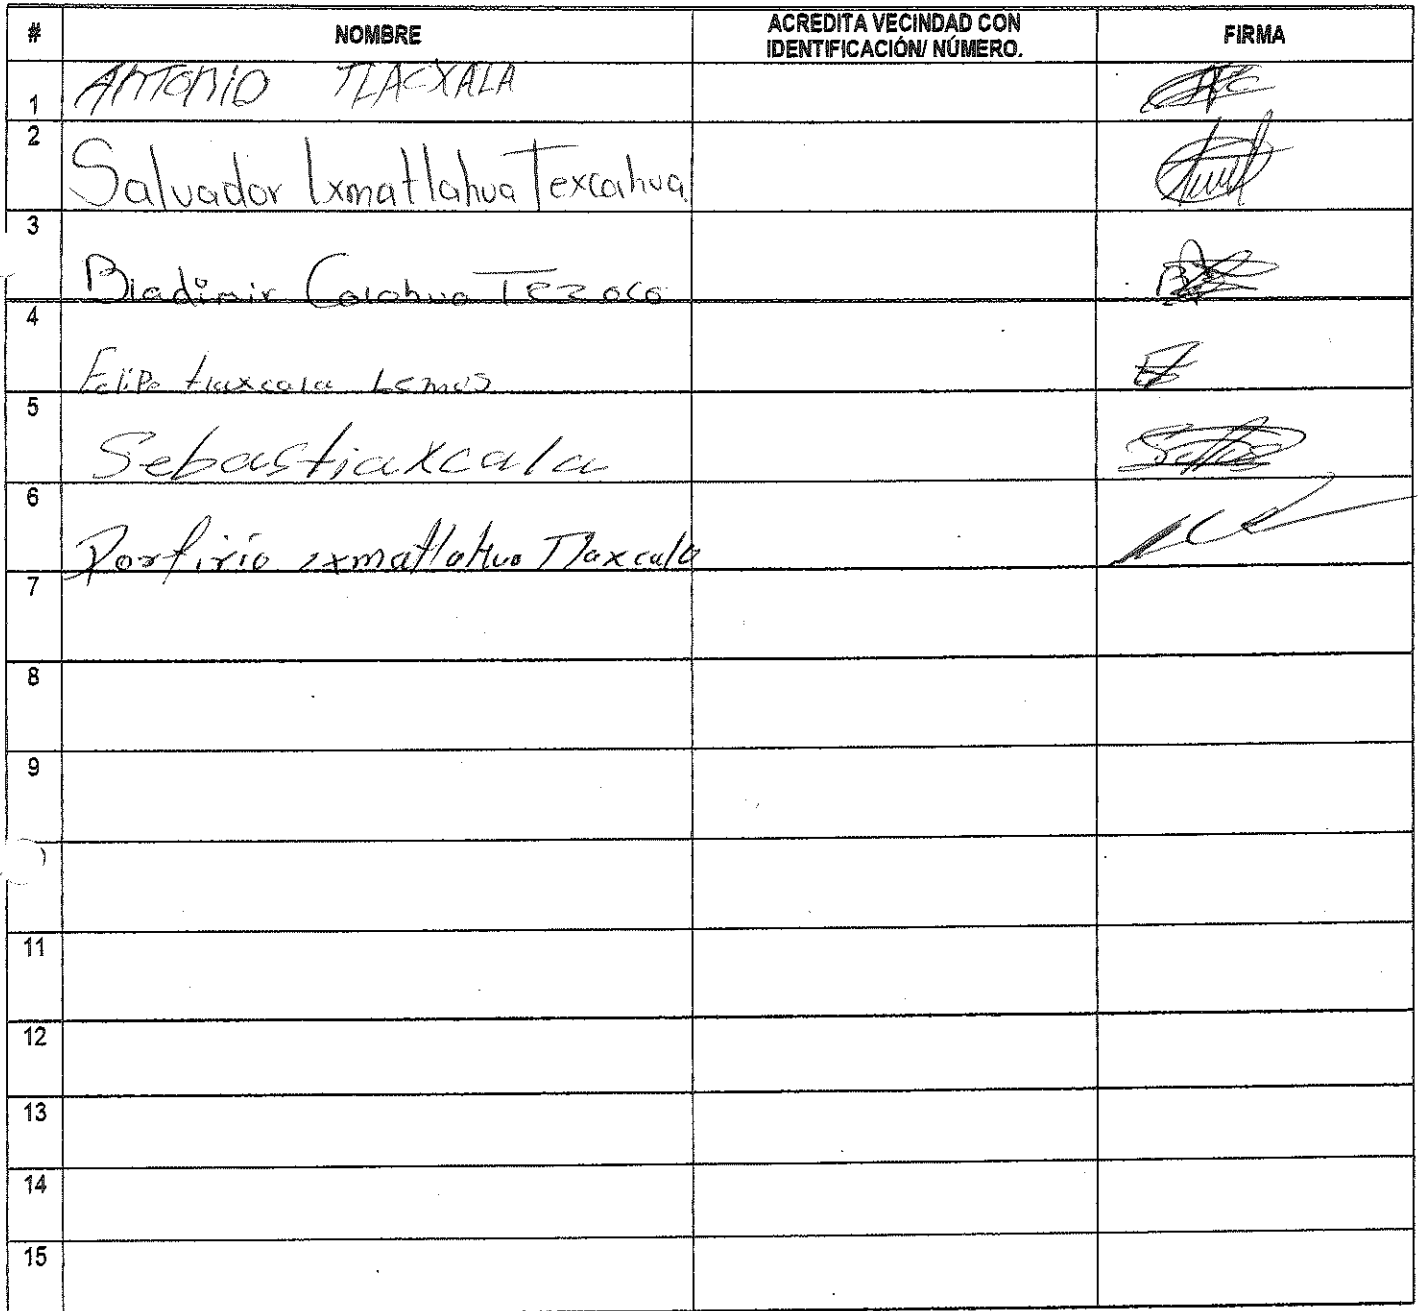 # NOMBRE ACREDITA VECINDAD CON IDENTIFICACIÓN/ NÚMERO. FIRMA
1 ANTONIO TLACXALA
2 Salvador Ixmatlahua Texcahua
3 Bladimir Colohua Tezoco
4 Felipe tlaxcala Lemus
5 Sebastiaxcala
6 Porfirio ixmatlahua Tlaxcala
7
8
9
11
12
13
14
15